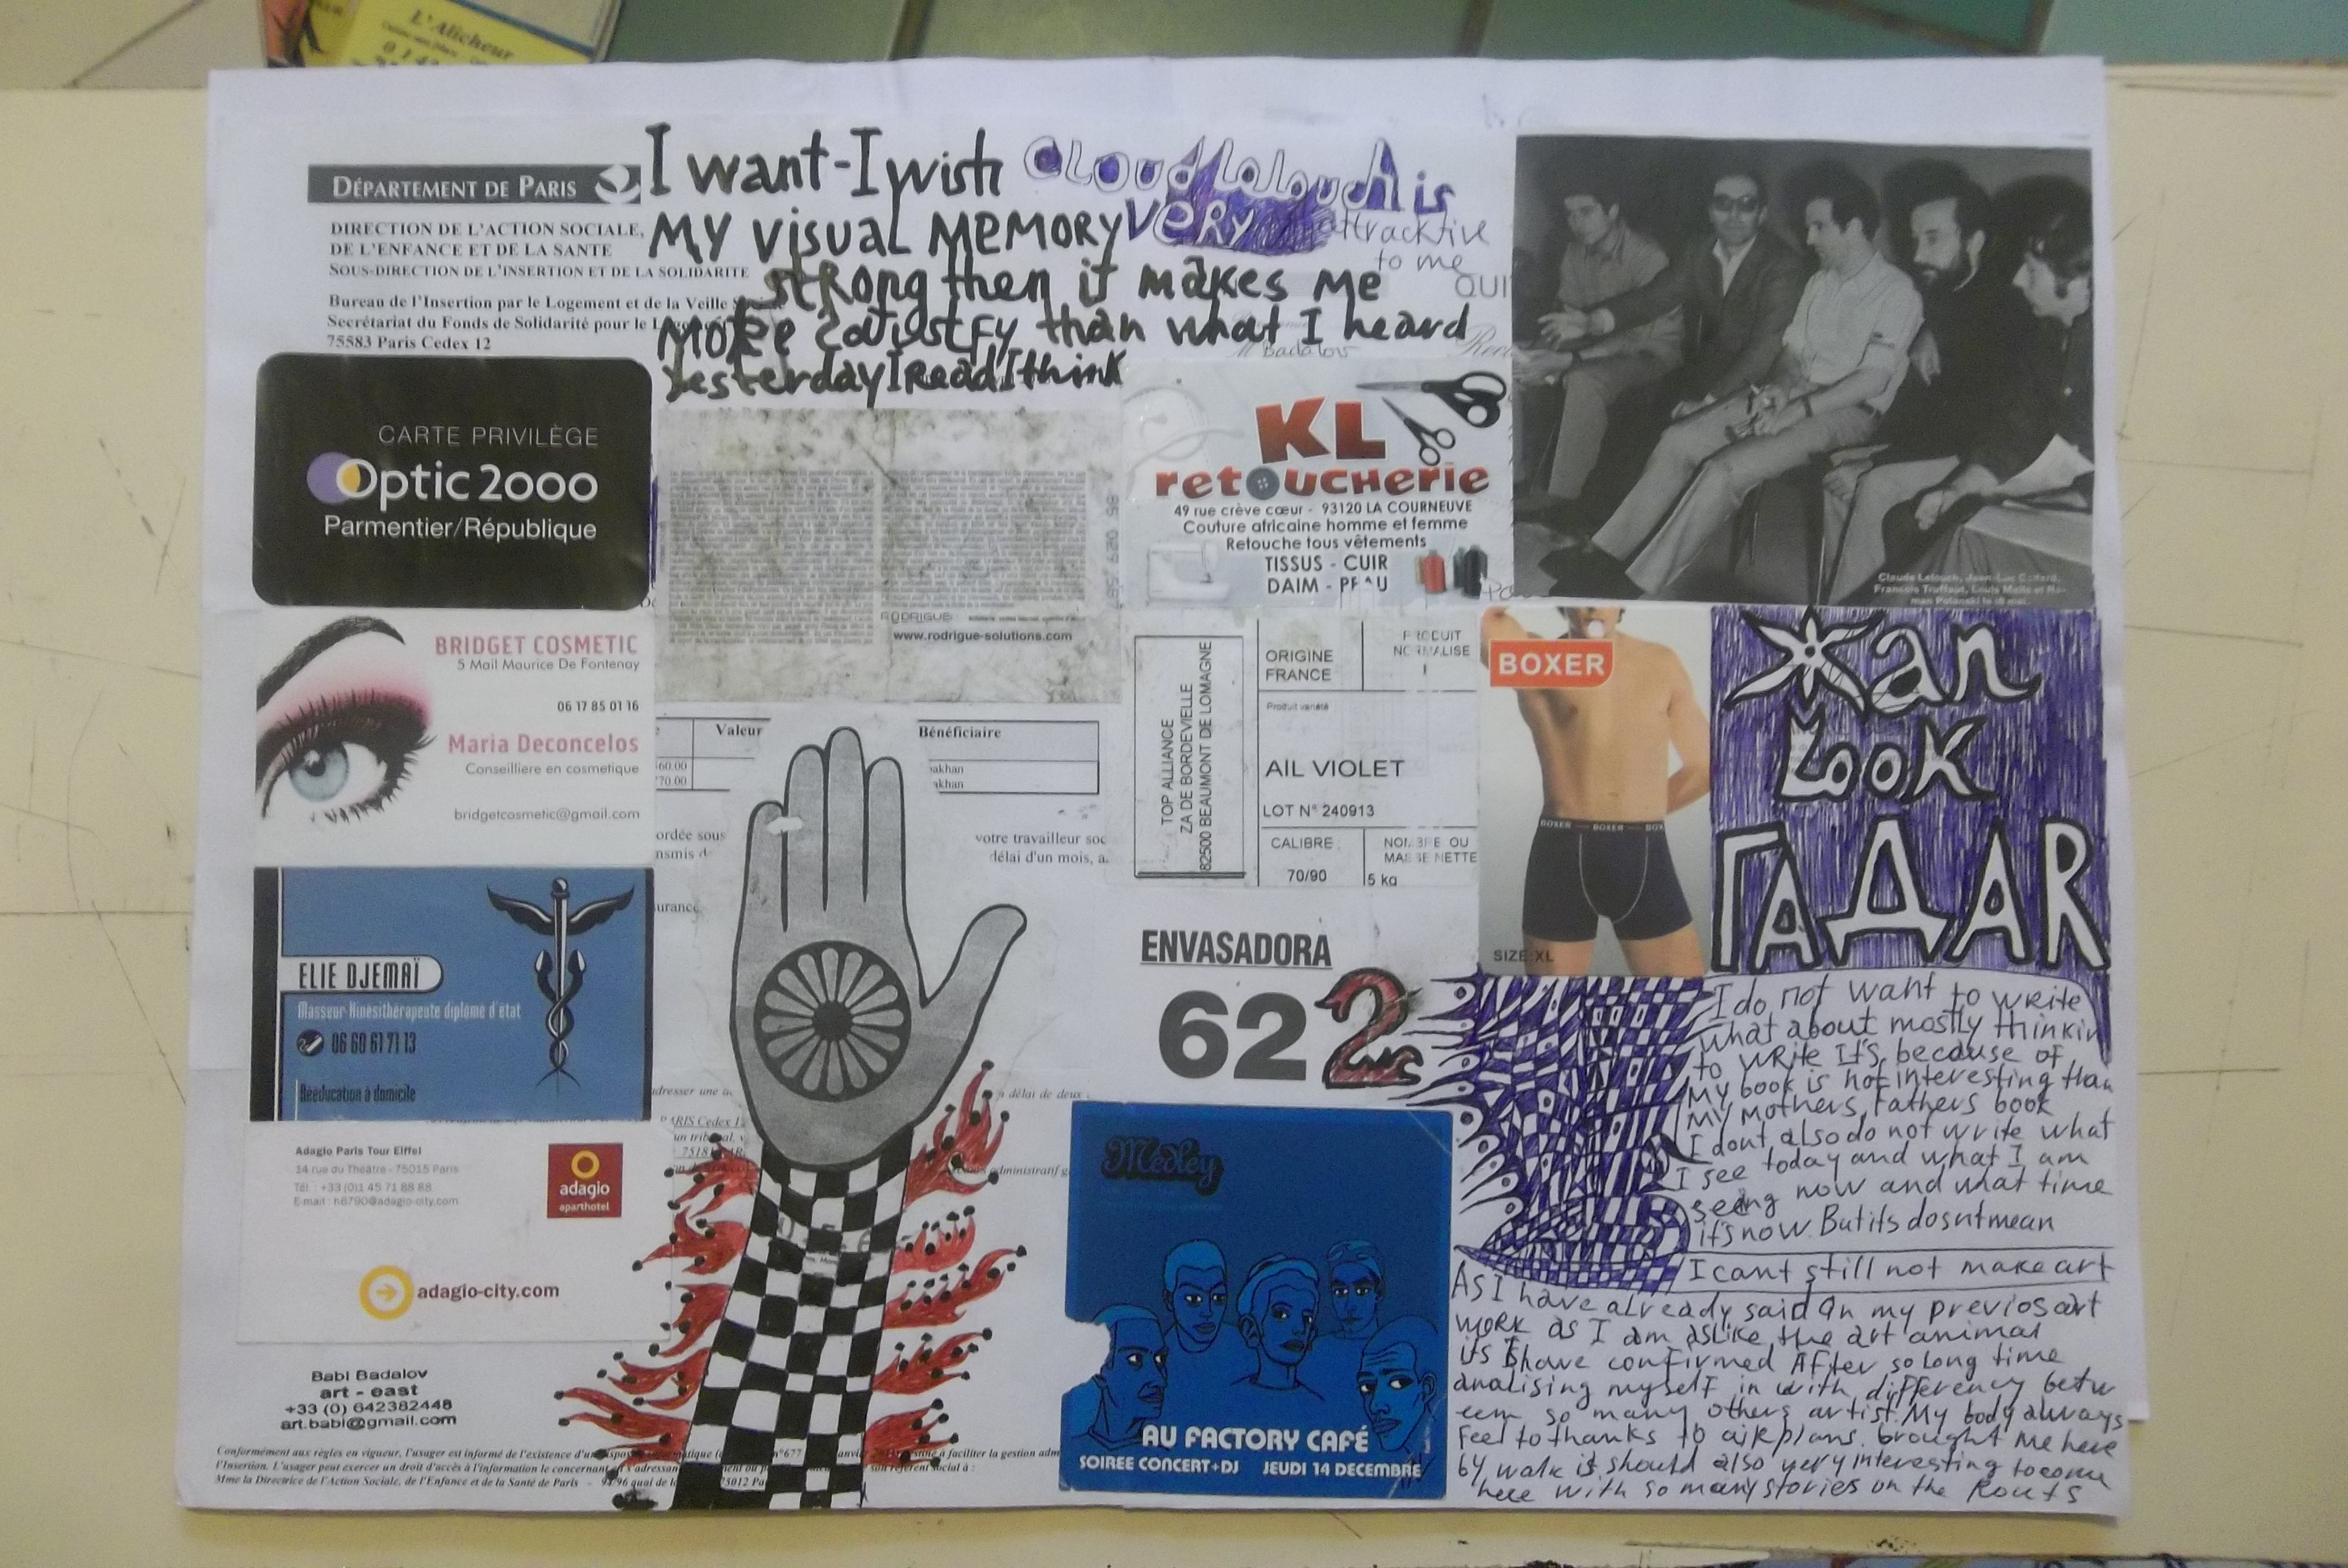 L'Alicheur
DÉPARTEMENT DE PARIS
DIRECTION DE L'ACTION SOCIALE,
DE L'ENFANCE ET DE LA SANTE
SOUS-DIRECTION DE L'INSERTION ET DE LA SOLIDARITE
Bureau de l'Insertion par le Logement et de la Veille
Secrétariat du Fonds de Solidarité pour le
75583 Paris Cedex 12
I want-I wish CLOUD LALOUCH is
MY VISUAL MEMORY VERY attracktive
to me
strong then it makes me
QUI
More satisfy than what I heard
Yesterday I Read I think
M Badalov
CARTE PRIVILÈGE
Optic 2000
Parmentier/République
RODRIGUE
www.rodrigue-solutions.com
KL
retoucherie
49 rue crève cœur - 93120 LA COURNEUVE
Couture africaine homme et femme
Retouche tous vêtements
TISSUS - CUIR
DAIM - PEAU
Claude Lelouch, Jean-Luc Godard,
François Truffaut, Louis Malle et Ro-
man Polanski le 18 mai.
BRIDGET COSMETIC
5 Mail Maurice De Fontenay
06 17 85 01 16
Maria Deconcelos
Conseilliere en cosmetique
bridgetcosmetic@gmail.com
Valeur
Bénéficiaire
60.00
akhan
70.00
akhan
ordée sous
votre travailleur soc
nsmis d
délai d'un mois, a
urance
TOP ALLIANCE
ZA DE BORDEVIELLE
82500 BEAUMONT DE LOMAGNE
ORIGINE
FRANCE
PRODUIT
NORMALISE
Produit variété
AIL VIOLET
LOT N° 240913
CALIBRE
70/90
NOMBRE OU
MASSE NETTE
5 kg
BOXER
BOXER BOXER BOX
SIZE:XL
Жan
Look
ГАДАR
ELIE DJEMAÏ
Masseur Kinésithérapeute diplômé d'état
06 60 61 71 13
Rééducation à domicile
ENVASADORA
622
I do not want to write
what about mostly thinkin
to write It's, because of
My book is not interesting than
My Mothers, Fathers book
I dont also do not write what
I see today and what I am
seeing now and what time
it's now. But its dosnt mean
I cant still not make art
As I have already said On my previos art
work as I am aslike the art animal
its I have confirmed After so long time
analising myself in with differency betw
eem so many others artist. My body always
Feel to thanks to airplans brought me here
by walk it should also very interesting to come
here with so many stories on the Routs
dresser une
délai de deux
PARIS Cedex 1
un tribunal,
administratif
Adagio Paris Tour Eiffel
14 rue du Théâtre - 75015 Paris
Tél. : +33 (0)1 45 71 88 88
E-mail : h6790@adagio-city.com
adagio
aparthotel
adagio-city.com
Medley
AU FACTORY CAFÉ
SOIREE CONCERT+DJ JEUDI 14 DECEMBRE
Babi Badalov
art - east
+33 (0) 642382448
art.babi@gmail.com
Conformément aux règles en vigueur, l'usager est informé de l'existence d'un n°677 à faciliter la gestion adm
l'Insertion. L'usager peut exercer un droit d'accès à l'information le concernant son référent social à :
Mme la Directrice de l'Action Sociale, de l'Enfance et de la Santé de Paris - 94/96 quai de la 75012 Pa